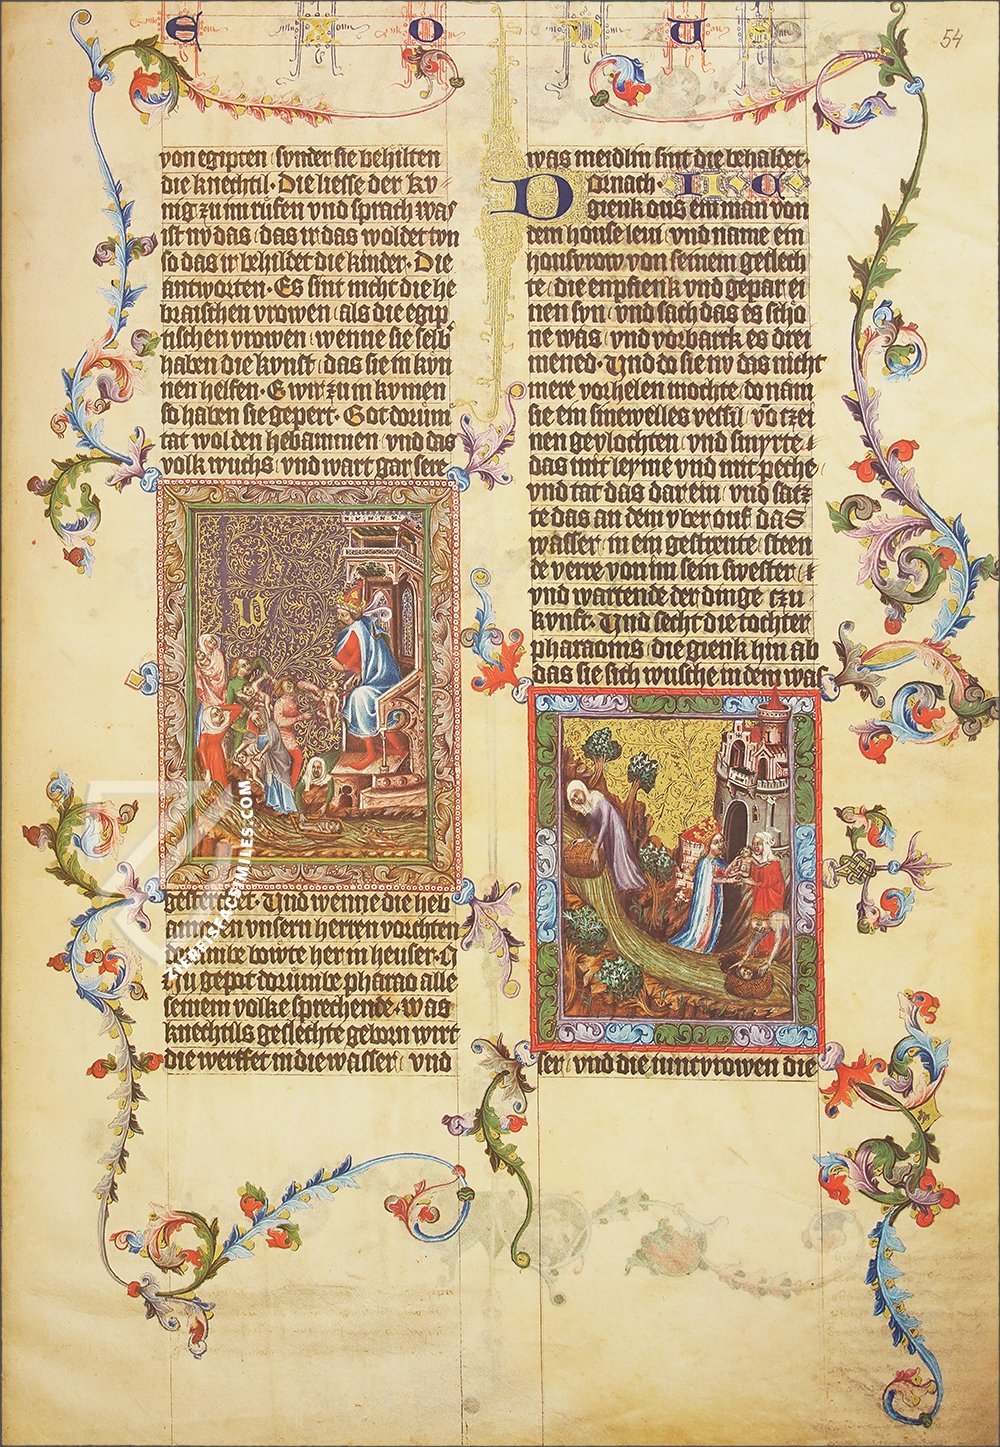 EXODUS
54
von egipten sunder sie behilten
die knechtil· Die liesse der kv-
nig zu im rufen vnd sprach was
ist nv das das ir das woldet tvn
so das ir behildet die kinder· Die
antworten· Es sint nicht die he
braischen vrowen als die egip
tischen vrowen wenne sie selb
haben die kvnst das sie in kvn
nen helfen· E wir zu im kvmen
so haben sie gepert· Got dorum
tat wol den hebammen vnd das
volk wuchs vnd wart gar sere
gesterket· Vnd wenne die heb
ammen vnsern herren vorchten
dorumbe bowte her in heuser·
gepot dorumbe pharao alle
seinem volke sprechende· was
knechtils geslechte geborn wirt
die werffet in die wasser vnd
was meidlin sint die behaldet·
Dornach· II C
gienk ous ein man von
dem house leui vnd name ein
housvrow von seinem geslech
te die enpfienk vnd gepar ei
nen svn vnd sach das es scho
ne was vnd vorbark es drei
mened· Vnd do sie nv das nicht
mere vorhelen mochte do nam
sie ein sinewelles vessil von czei
nen gevlochten vnd smyrte
das mit leyme vnd mit peche
vnd tat das darein vnd satz
te das an dem vber ouf das
wasser in ein gestreute steen
de verre von im sein swester
vnd wartende der dinge czu
kvnft· Vnd secht die tochter
pharaonis die gienk hin ab
das sie sich wusche in dem was
ser vnd die iunkvrowen die
ZIEREISFACSIMILES.COM